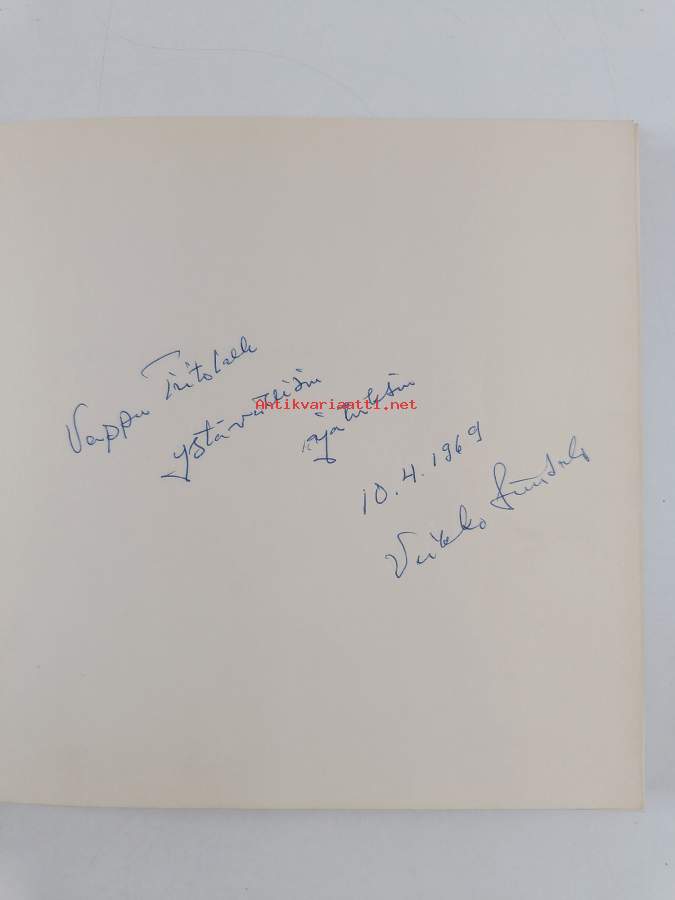 Vappu Tritolalle
ystävällisin
ajatuksin
Antikvariaatti.net
10.4.1969
Veikko